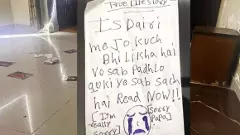 True Life Story
Is Dairi
me Jo kuch
Bhi Likha hai
vo sab Padhlo
quki vo sab sach
hai Read NOW!!
[I'm really sorry]
[Sorry Papa]